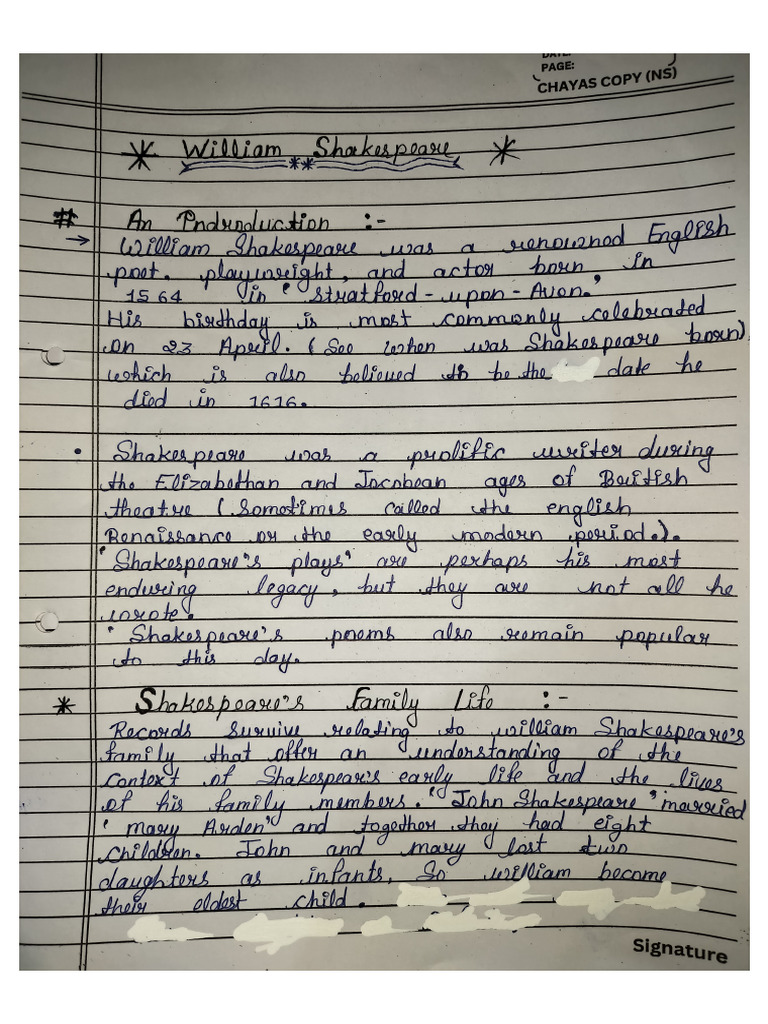 DATE:
PAGE:
CHAYAS COPY (NS)
* William Shakespeare *
**
# An Indroduction :-
→ William Shakespeare was a renownod English
poet. playwright, and actor born in
1564 in ' Stratford-upon-Avon.'
His birthday is most commonly celebrated
on 23 April. (See when was Shakespeare born)
which is also believed to be the date he
died in 1616.
• Shakespeare was a prolific writer during
the Elizabethan and Jacobean ages of British
theatre (Sometimes called the english
Renaissance or the early modern period.).
'Shakespeare's plays' are perhaps his most
enduring legacy, but they are not all he
wrote.
'Shakespeare's poems also remain popular
to this day.
* Shakespeare's Family Life :-
Records survive relating to william Shakespeare's
family that offer an understanding of the
context of Shakespear's early life and the lives
of his family members. 'John Shakespeare' married
'mary Arden' and together they had eight
children. John and mary lost two
daughters as infants, So william become
their eldest child.
Signature